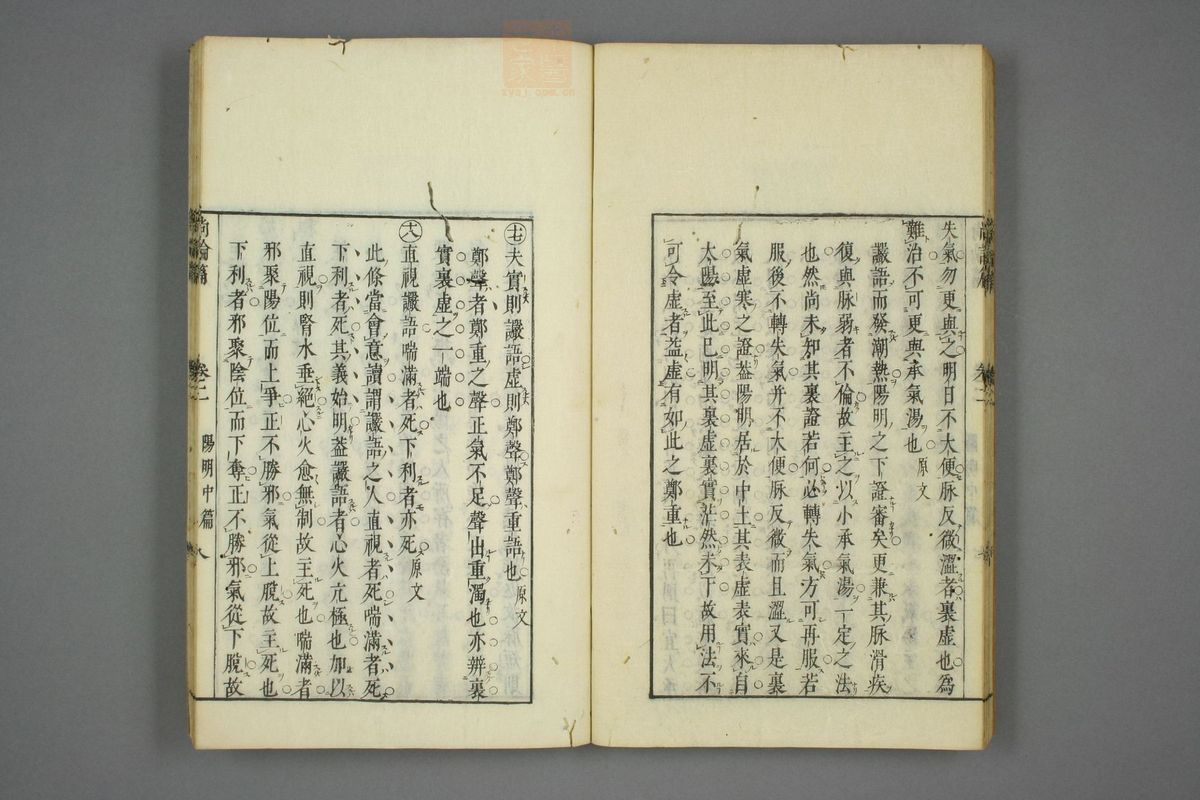 失氣勿更與之明日不大便脉反微澀者裏虛也為
難治不可更與承氣湯也原文
讝語而發潮熱陽明之下證審矣更兼其脉滑疾
復與脉弱者不倫故主之以小承氣湯一定之法
也然尚未知其裏證若何必轉失氣方可再服若
服後不轉失氣并不大便脉反微而且澀又是裏
氣虛寒之證葢陽明居於中土其表虛表實來自
太陽至此已明其裏虛裏實茫然未下故用法不
可令虛者益虛有如此之鄭重也
尚論篇 卷二
夫實則讝語虛則鄭聲鄭聲重語也原文
鄭聲者鄭重之聲正氣不足聲出重濁也亦辨裏
實裏虛之一端也
直視讝語喘滿者死下利者亦死原文
此條當會意讀謂讝語之人直視者死喘滿者死
下利者死其義始明葢讝語者心火亢極也加以
直視則腎水垂絕心火愈無制故主死也喘滿者
邪聚陽位而上爭正不勝邪氣從上脫故主死也
下利者邪聚陰位而下奪正不勝邪氣從下脫故
尚論篇 卷二 陽明中篇 八
xysj.com.cn